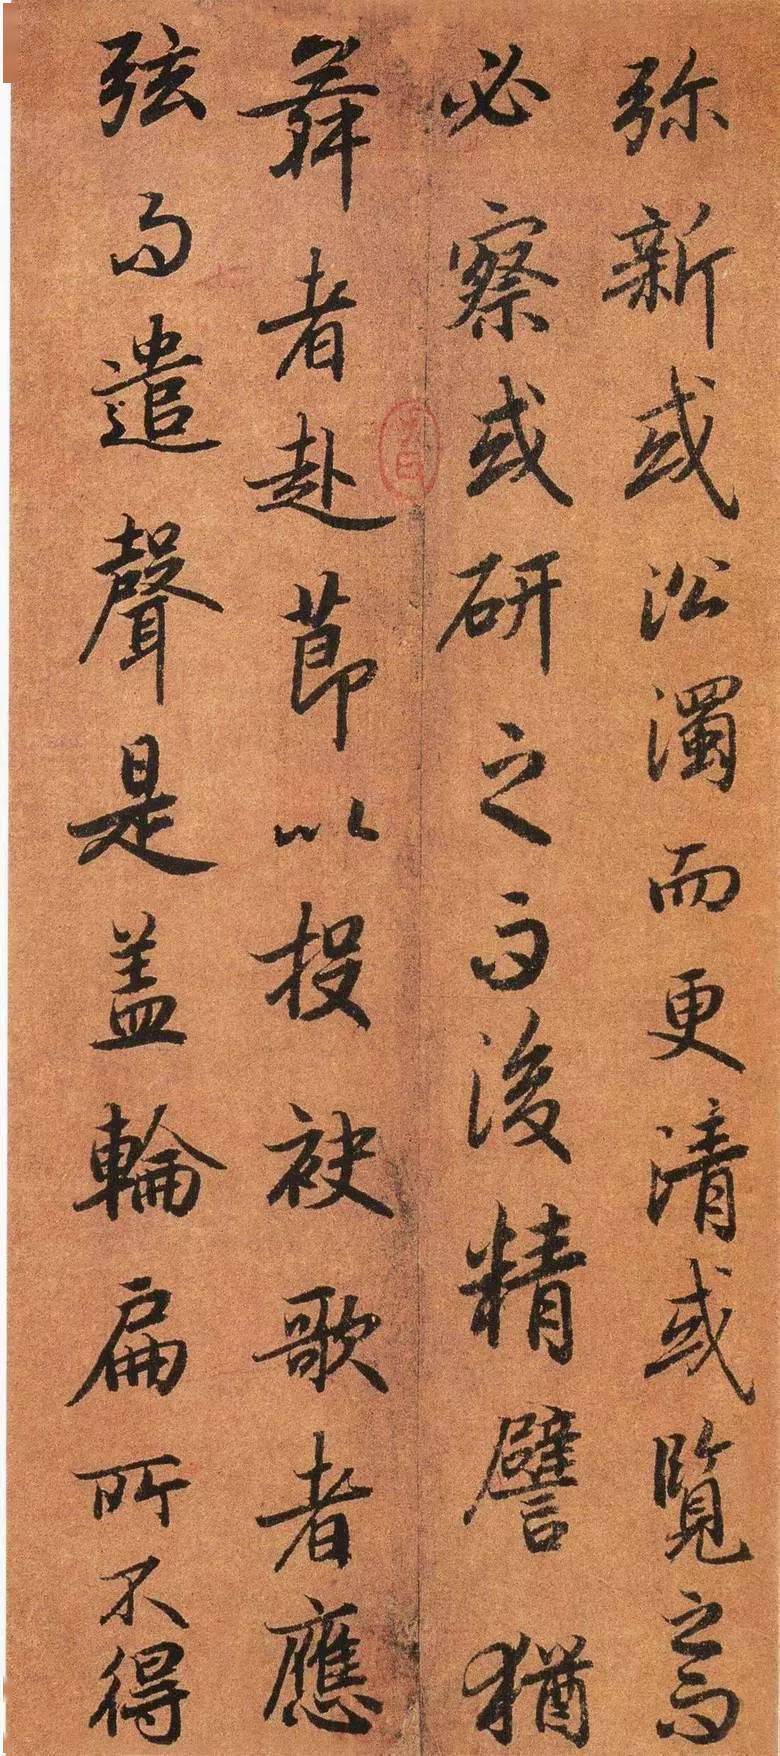 弥新或沿濁而更清或覽之而
必察或研之而後精譬猶
舞者赴莭以投袂歌者應
弦而遣聲是盖輪扁所不得